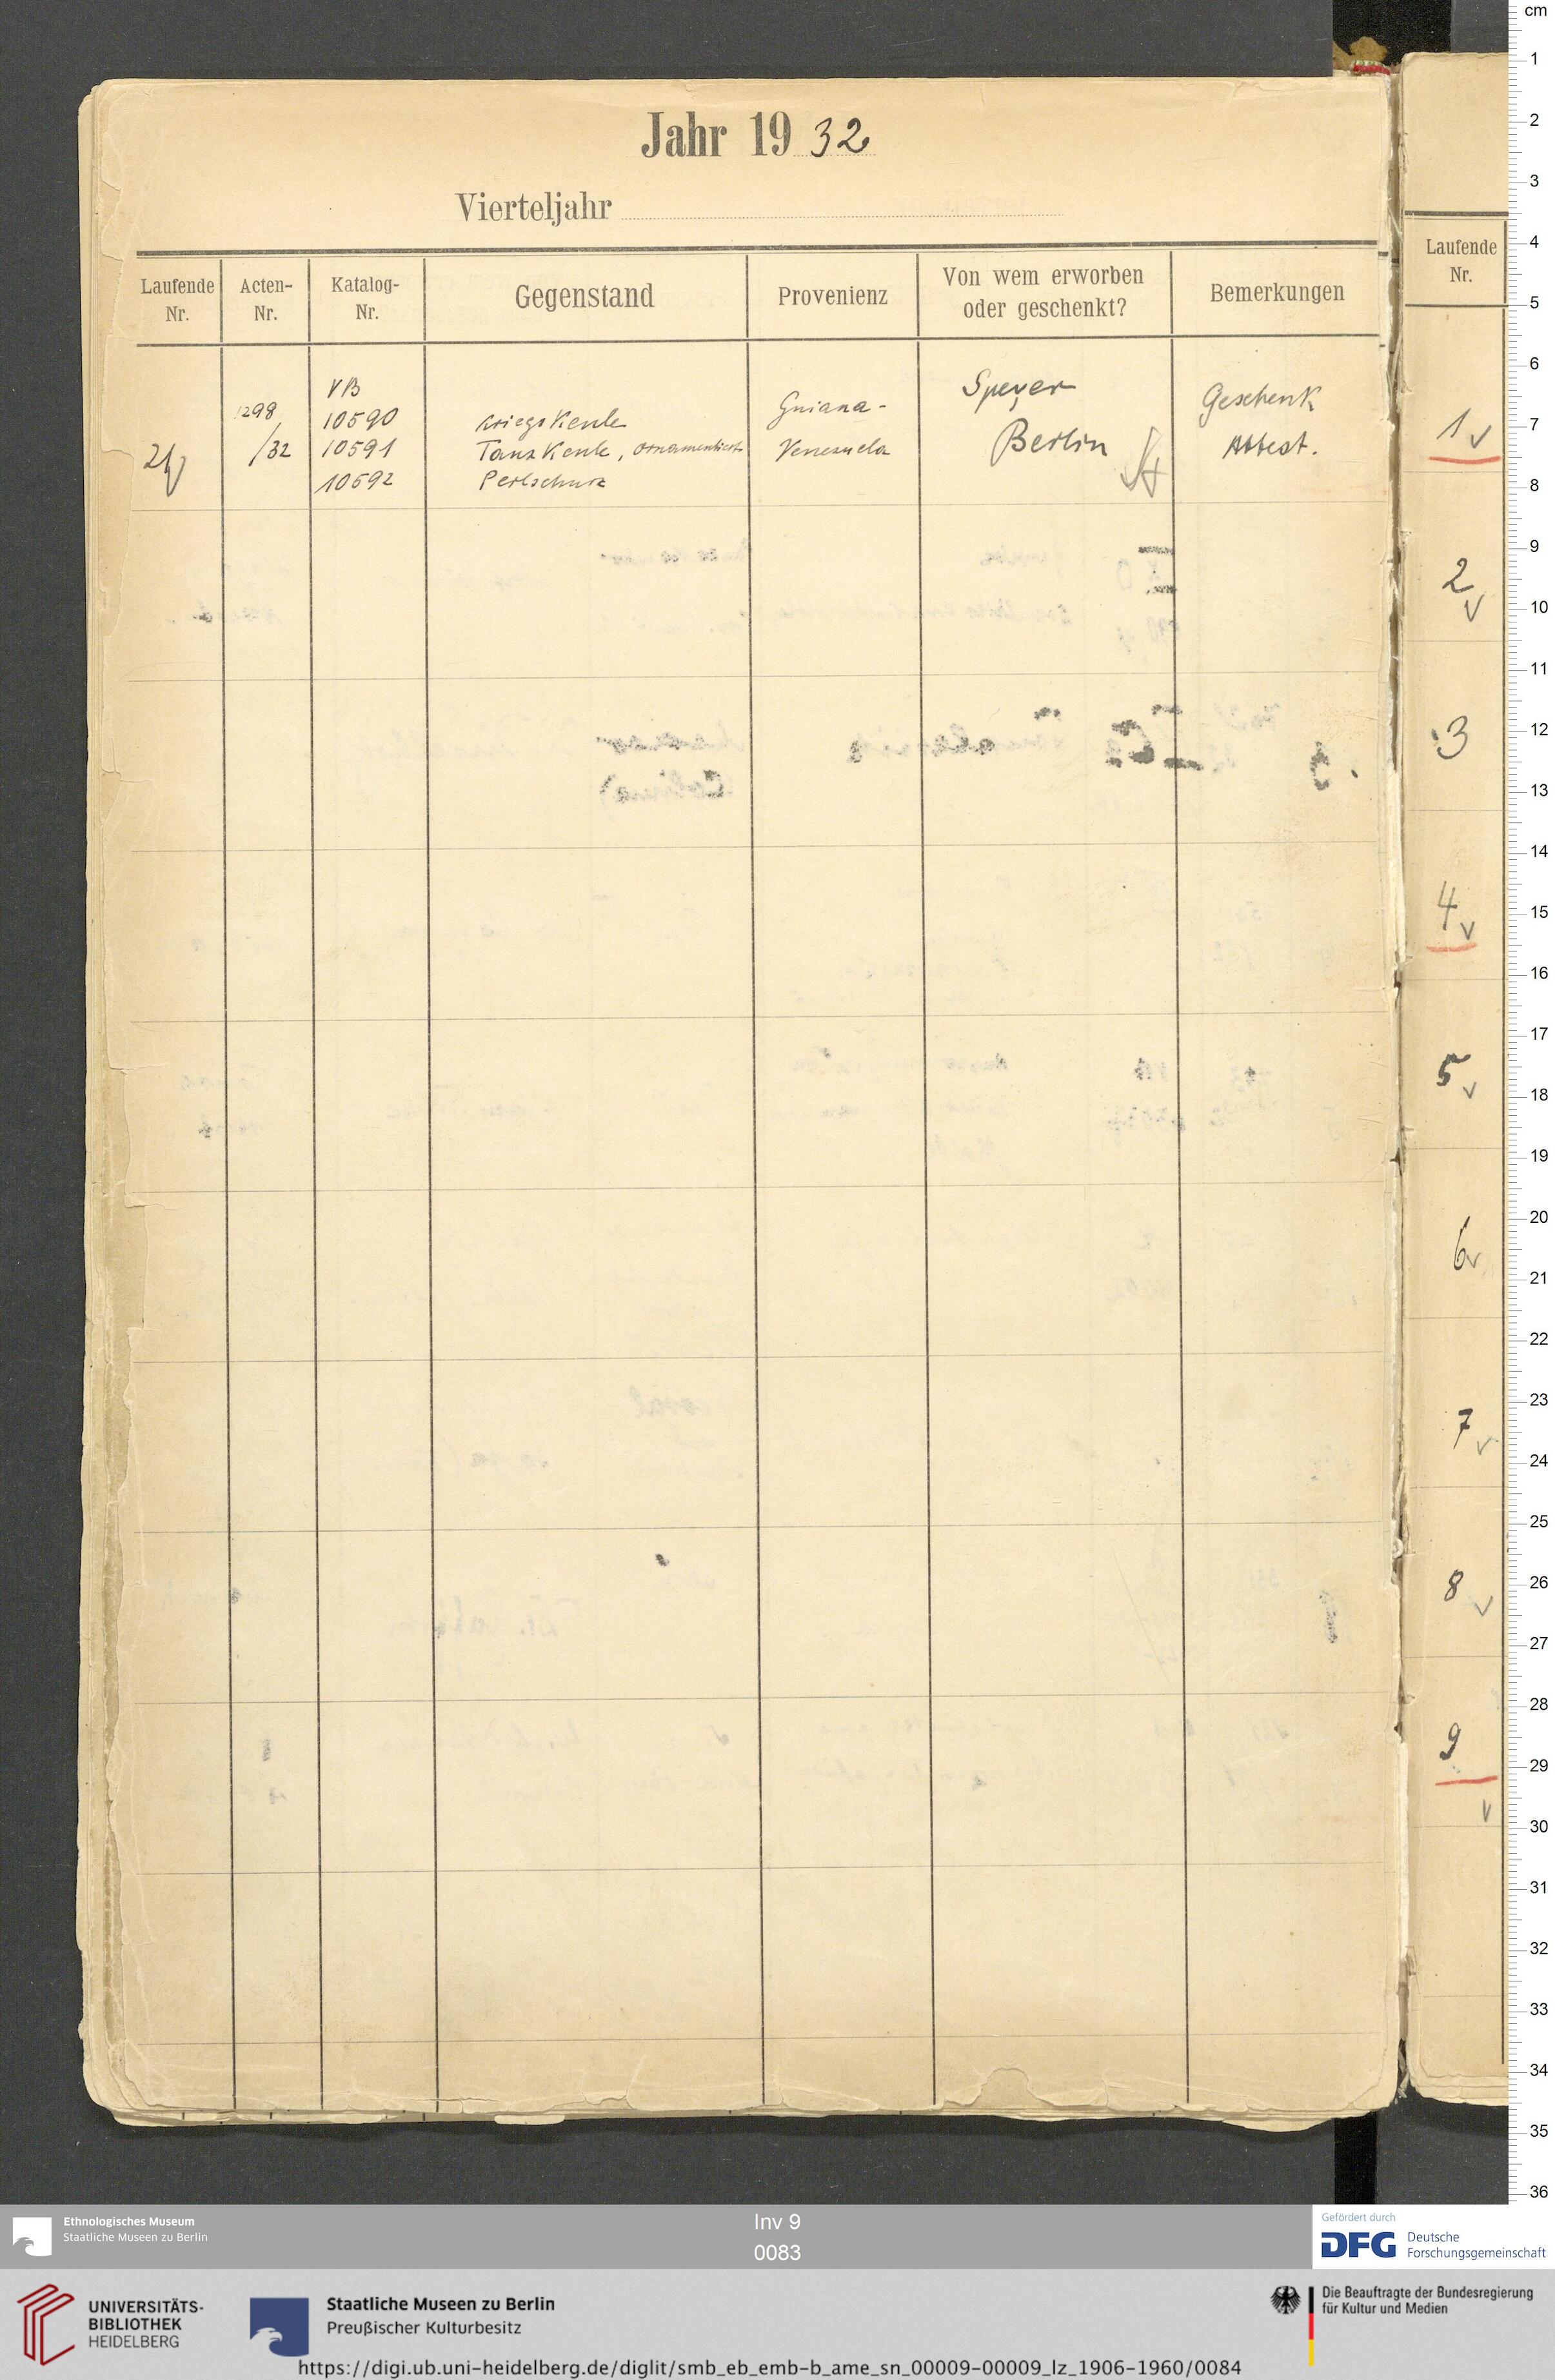 Jahr 1932
Vierteljahr
Laufende Nr.
Acten-Nr.
Katalog-Nr.
Gegenstand
Provenienz
Von wem erworben oder geschenkt?
Bemerkungen
1298
/32
VB
10590
10591
10592
Kriegskeule
Tanzkeule, ornamentiert
Perlschurz
Guiana-
Venezuela
Speyer
Berlin
Geschenk
Attest.
Laufende
Nr.
1
2
3
4
5
6
7
8
9
cm
1
2
3
4
5
6
7
8
9
10
11
12
13
14
15
16
17
18
19
20
21
22
23
24
25
26
27
28
29
30
31
32
33
34
35
36
Ethnologisches Museum
Staatliche Museen zu Berlin
Inv 9
0083
Gefördert durch
DFG Deutsche
Forschungsgemeinschaft
UNIVERSITÄTS-
BIBLIOTHEK
HEIDELBERG
Staatliche Museen zu Berlin
Preußischer Kulturbesitz
Die Beauftragte der Bundesregierung
für Kultur und Medien
https://digi.ub.uni-heidelberg.de/diglit/smb_eb_emb-b_ame_sn_00009-00009_lz_1906-1960/0084